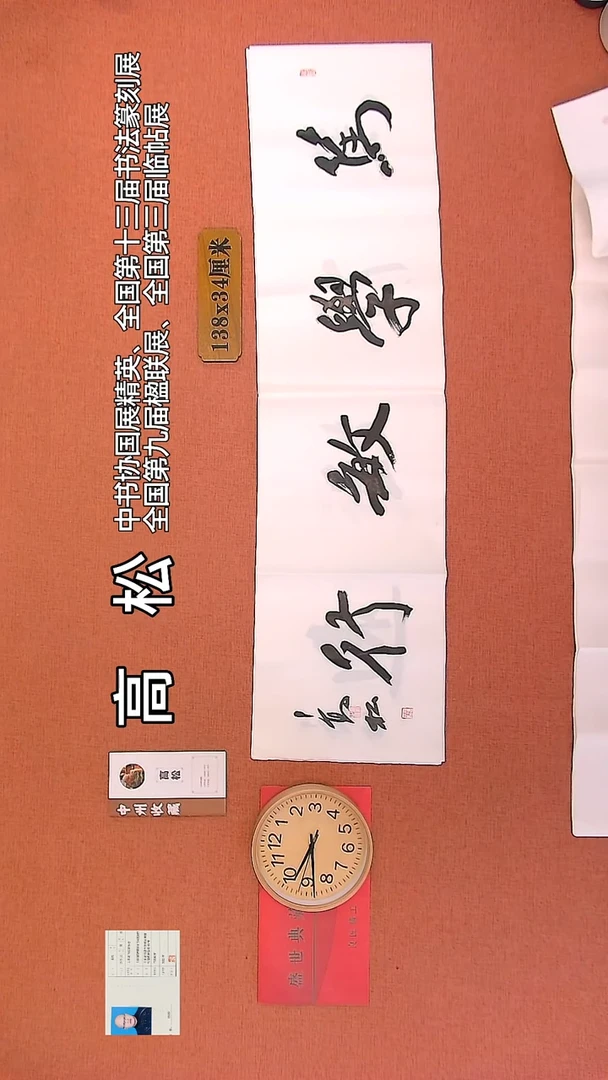 中书协国展精英、全国第十三届书法篆刻展
全国第九届楹联展、全国第三届临帖展
高 松
138x34厘米
篤學敏行
高松
高松
中州收藏
盛世典
12 1 2 3 4 5 6 7 8 9 10 11